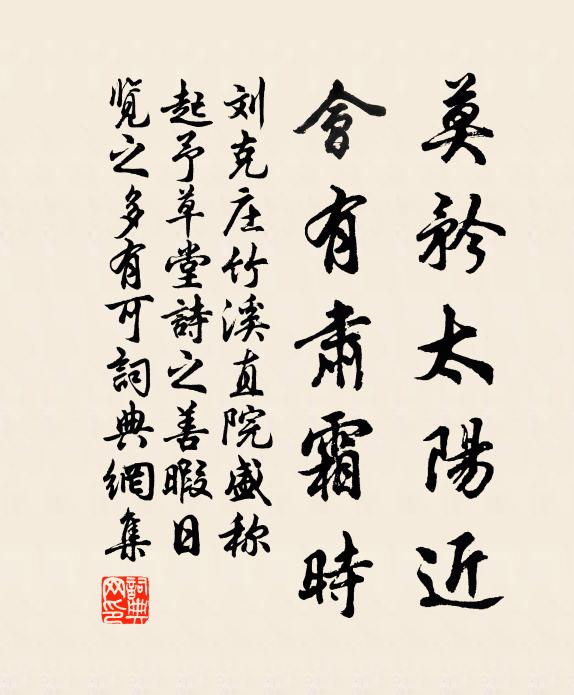 莫矜太陽近
會有肅霜時
刘克庄竹溪直院盛称
起予草堂詩之善暇日
览之多有可詞典網集
詞典網印